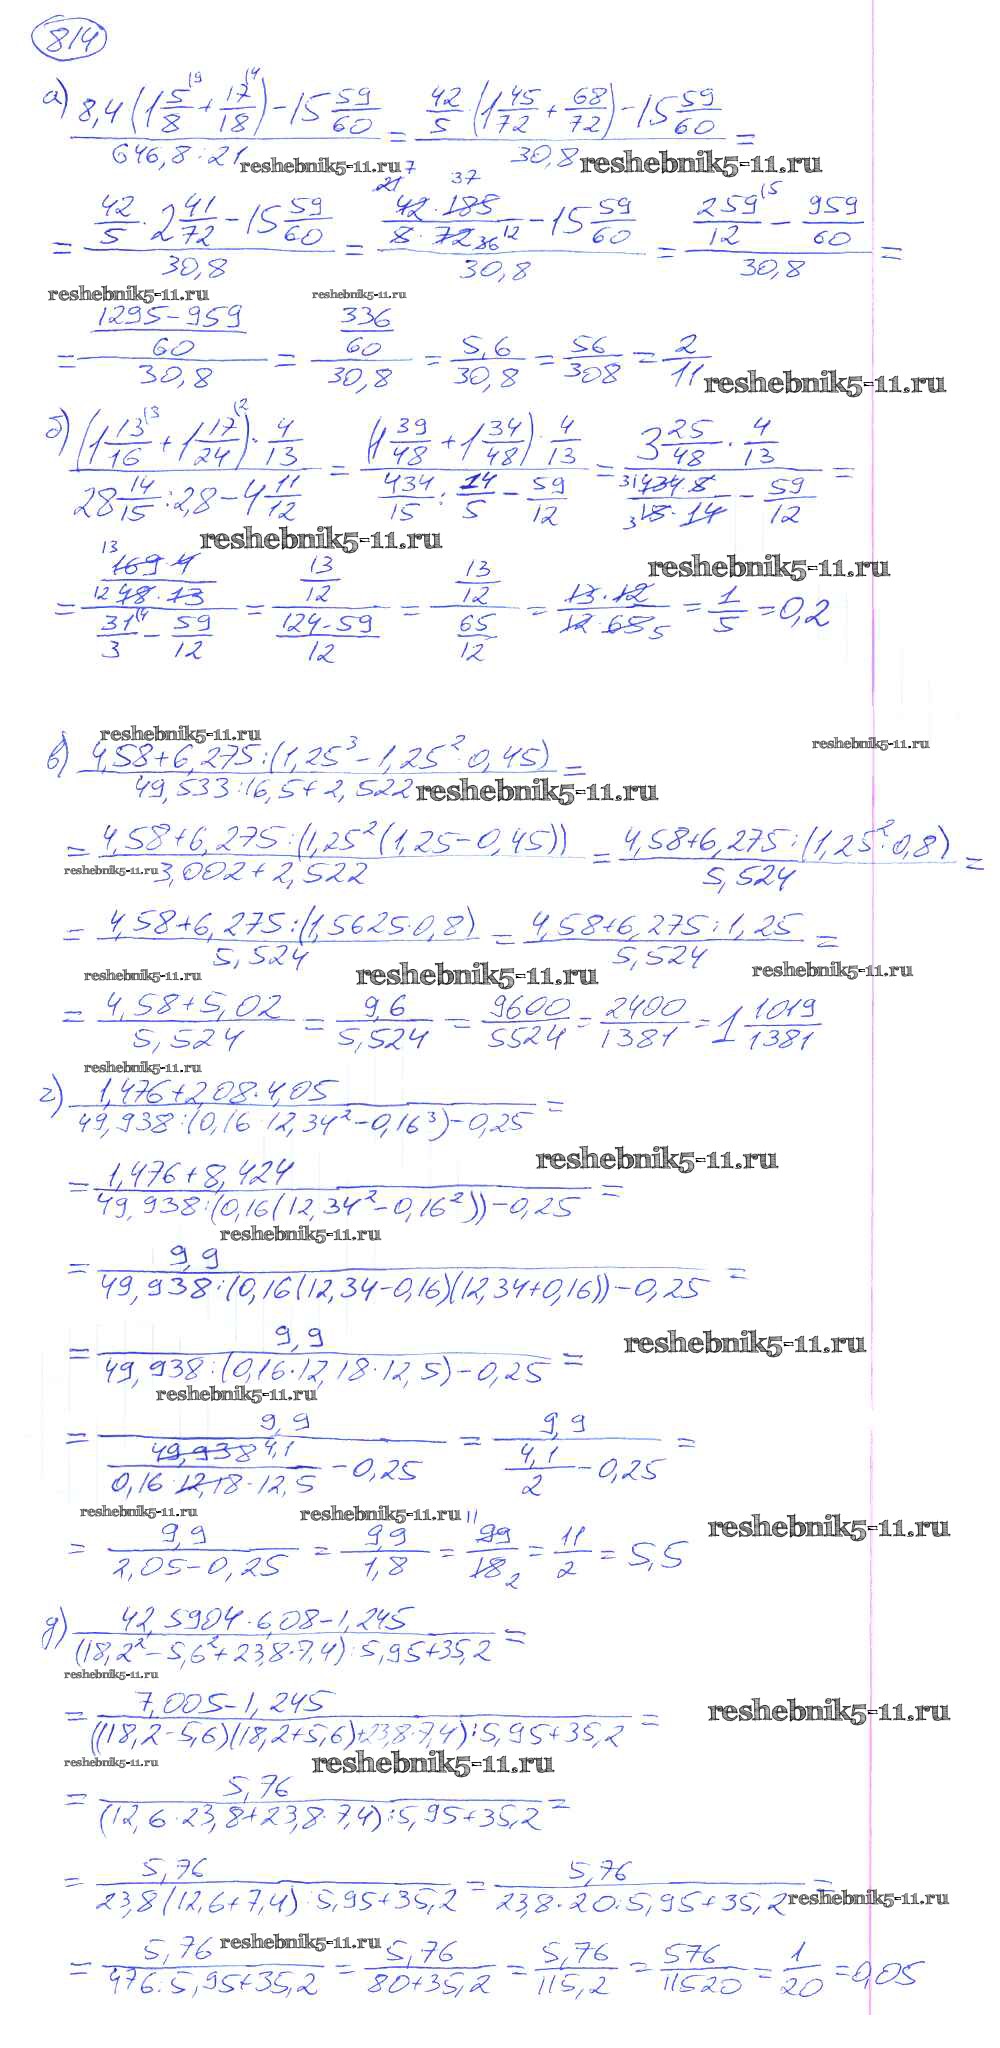 814
а) (8,4(1 5/8 + 17/18) - 15 59/60)/(646,8:21) = (42/5 · (1 45/72 + 68/72) - 15 59/60)/30,8 =
reshebnik5-11.ru reshebnik5-11.ru
= (42/5 · 2 41/72 - 15 59/60)/30,8 = ((42·185)/(8·72) - 15 59/60)/30,8 = (259/12 - 959/60)/30,8 =
reshebnik5-11.ru reshebnik5-11.ru
= ((1295-959)/60)/30,8 = (336/60)/30,8 = 5,6/30,8 = 56/308 = 2/11
reshebnik5-11.ru
б) ((1 13/16 + 1 17/24) · 4/13)/(28 14/15 : 2,8 - 4 11/12) = ((1 39/48 + 1 34/48) · 4/13)/(434/15 : 14/5 - 59/12) = (3 25/48 · 4/13)/((434·5)/(15·14) - 59/12) =
reshebnik5-11.ru reshebnik5-11.ru
= ((169·4)/(48·13))/(31/3 - 59/12) = (13/12)/((124-59)/12) = (13/12)/(65/12) = (13·12)/(12·65) = 1/5 = 0,2
reshebnik5-11.ru reshebnik5-11.ru
в) (4,58+6,275:(1,25³-1,25²·0,45))/(49,533:16,5+2,522) =
reshebnik5-11.ru
= (4,58+6,275:(1,25²(1,25-0,45)))/(3,002+2,522) = (4,58+6,275:(1,25²·0,8))/5,524 =
reshebnik5-11.ru
= (4,58+6,275:(1,5625·0,8))/5,524 = (4,58+6,275:1,25)/5,524 =
reshebnik5-11.ru reshebnik5-11.ru reshebnik5-11.ru
= (4,58+5,02)/5,524 = 9,6/5,524 = 9600/5524 = 2400/1381 = 1 1019/1381
reshebnik5-11.ru
г) (1,476+2,08·4,05)/(49,938:(0,16·12,34²-0,16³)-0,25) =
reshebnik5-11.ru
= (1,476+8,424)/(49,938:(0,16(12,34²-0,16²))-0,25) =
reshebnik5-11.ru
= 9,9/(49,938:(0,16(12,34-0,16)(12,34+0,16))-0,25) =
reshebnik5-11.ru
= 9,9/(49,938:(0,16·12,18·12,5)-0,25) =
reshebnik5-11.ru
= 9,9/(49,938 4,1/(0,16·12,18·12,5) - 0,25) = 9,9/(4,1/2 - 0,25) =
reshebnik5-11.ru reshebnik5-11.ru reshebnik5-11.ru
= 9,9/(2,05-0,25) = 9,9/1,8 = 99/18 = 11/2 = 5,5
д) (42,5904:6,08-1,245)/((18,2²-5,6²+23,8·7,4):5,95+35,2) =
reshebnik5-11.ru
= (7,005-1,245)/(((18,2-5,6)(18,2+5,6)+23,8·7,4):5,95+35,2) =
reshebnik5-11.ru
reshebnik5-11.ru reshebnik5-11.ru
= 5,76/((12,6·23,8+23,8·7,4):5,95+35,2) =
= 5,76/(23,8(12,6+7,4):5,95+35,2) = 5,76/(23,8·20:5,95+35,2) =
reshebnik5-11.ru
reshebnik5-11.ru
= 5,76/(476:5,95+35,2) = 5,76/(80+35,2) = 5,76/115,2 = 576/11520 = 1/20 = 0,05